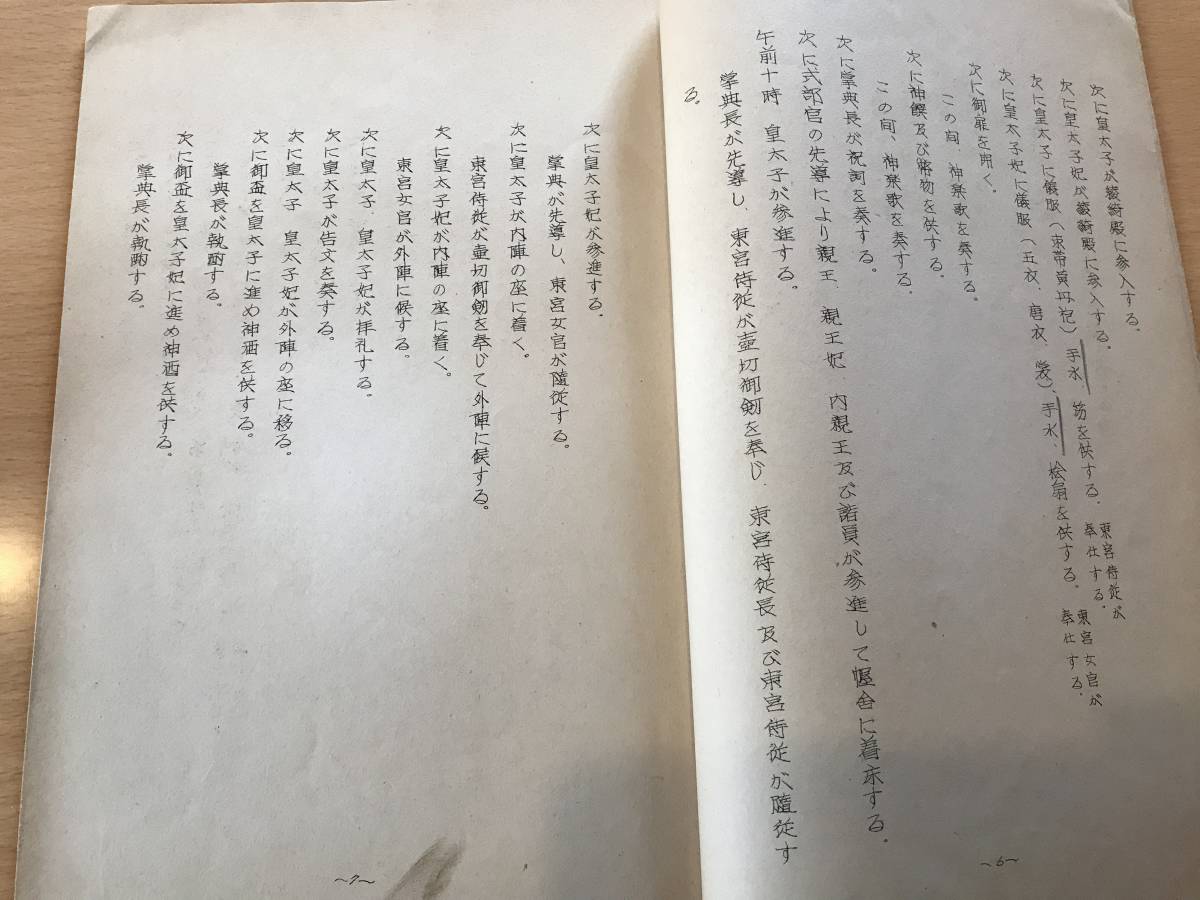 次に皇太子が綾綺殿に参入する。
次に皇太子妃が綾綺殿に参入する。
次に皇太子に儀服（束帯黄丹袍）、手水、笏を供する。東宮侍従が奉仕する。
次に皇太子妃に儀服（五衣、唐衣、裳）、手水、桧扇を供する。東宮女官が奉仕する。
次に御扉を開く。
この間、神楽歌を奏する。
次に神饌及び幣物を供する。
この間、神楽歌を奏する。
次に掌典長が祝詞を奏する。
次に式部官の先導により親王、親王妃、内親王及び諸員が参進して幄舎に着床する。
午前十時　皇太子が参進する。
掌典長が先導し、東宮侍従が壺切御剣を奉じ、東宮侍従長及び東宮侍従が随従す
る。
～6～
次に皇太子妃が参進する。
掌典が先導し、東宮女官が随従する。
次に皇太子が内陣の座に着く。
東宮侍従が壺切御剣を奉じて外陣に候する。
次に皇太子妃が内陣の座に着く。
東宮女官が外陣に候する。
次に皇太子　皇太子妃が拝礼する。
次に皇太子が告文を奏する。
次に皇太子　皇太子妃が外陣の座に移る。
次に御盃を皇太子に進め神酒を供する。
掌典長が執酌する。
次に御盃を皇太子妃に進め神酒を供する。
掌典長が執酌する。
～7～